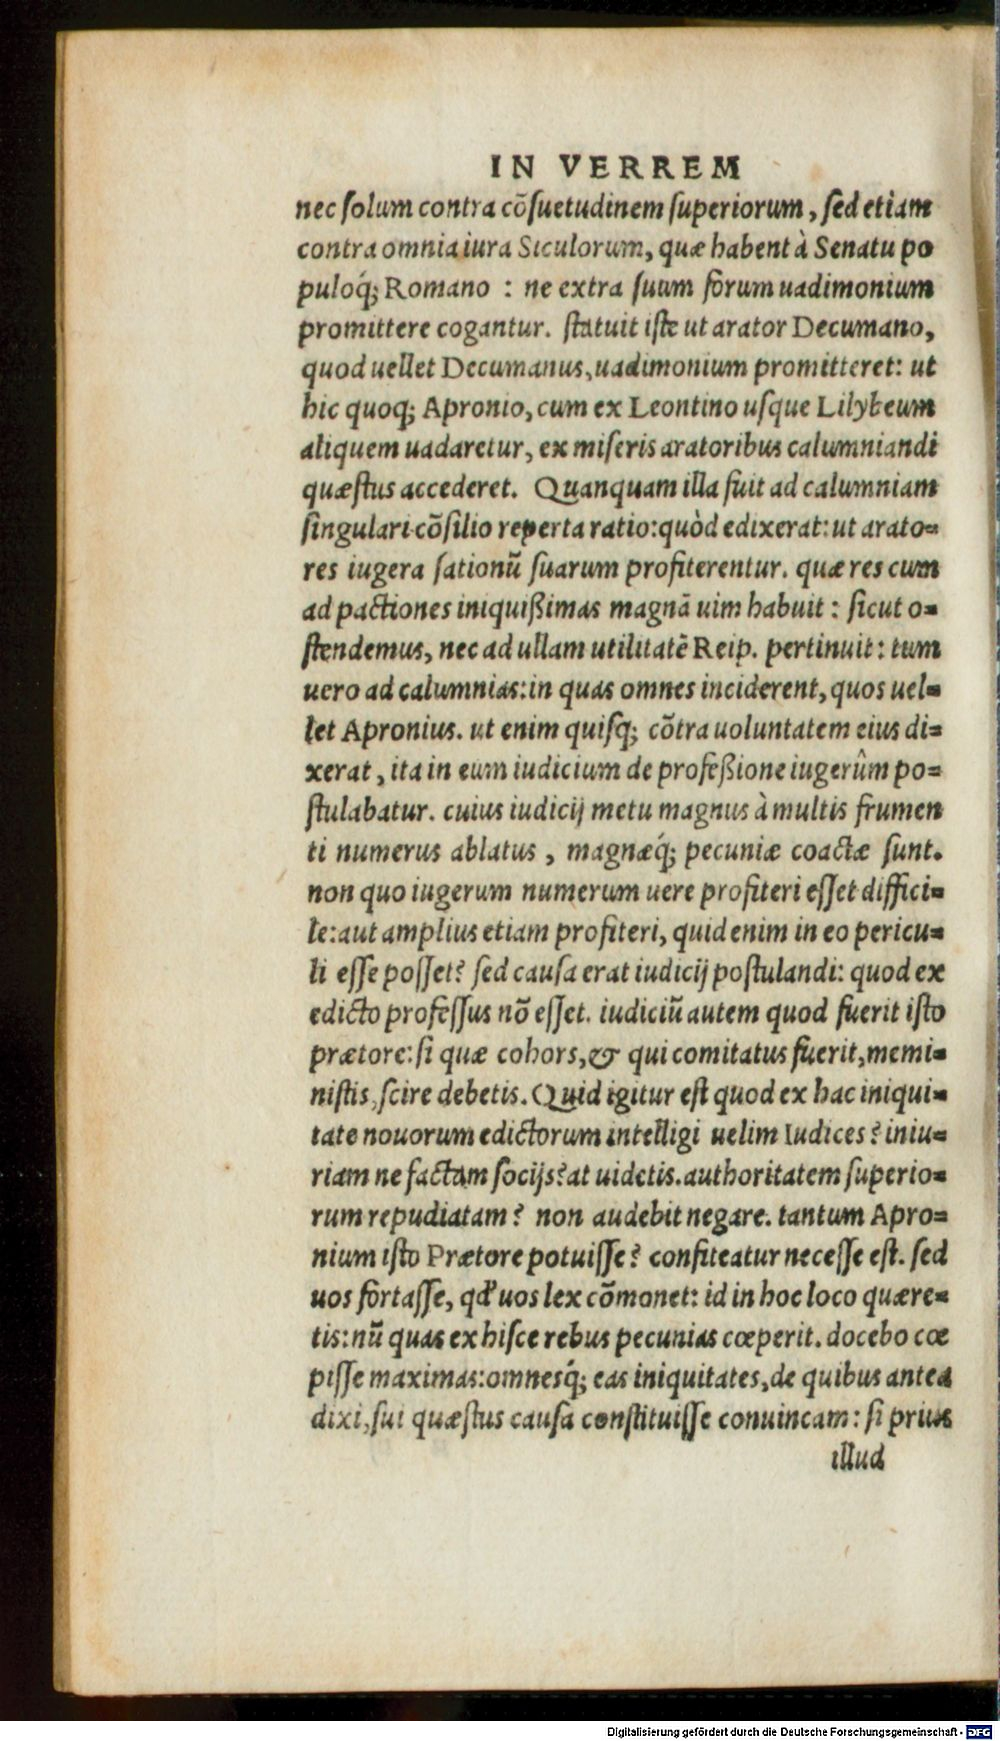 IN VERREM
nec ſolum contra cōſuetudinem ſuperiorum, ſed etiam
contra omnia iura Siculorum, quæ habent à Senatu po
puloq́; Romano : ne extra ſuum forum uadimonium
promittere cogantur. ſtatuit iſte ut arator Decumano,
quod uellet Decumanus, uadimonium promitteret: ut
hic quoq; Apronio, cum ex Leontino uſque Lilybeum
aliquem uadaretur, ex miſeris aratoribus calumniandi
quæſtus accederet. Quanquam illa fuit ad calumniam
ſingulari cōſilio reperta ratio: quòd edixerat: ut arato=
res iugera ſationū ſuarum profiterentur. quæ res cum
ad pactiones iniquißimas magnā uim habuit : ſicut o=
ſtendemus, nec ad ullam utilitatē Reip. pertinuit : tum
uero ad calumnias: in quas omnes inciderent, quos uel=
let Apronius. ut enim quiſq; cōtra uoluntatem eius di=
xerat, ita in eum iudicium de profeßione iugerûm po=
ſtulabatur. cuius iudicij metu magnus à multis frumen
ti numerus ablatus, magnæq́; pecuniæ coactæ ſunt.
non quo iugerum numerum uere profiteri eſſet diffici=
le: aut amplius etiam profiteri, quid enim in eo pericu=
li eſſe poſſet? ſed cauſa erat iudicij poſtulandi: quod ex
edicto profeſſus nō eſſet. iudiciū autem quod fuerit iſto
prætore: ſi quæ cohors, & qui comitatus fuerit, memi=
niſtis, ſcire debetis. Quid igitur eſt quod ex hac iniqui=
tate nouorum edictorum intelligi uelim Iudices? iniu=
riam ne factam ſocijs? at uidetis. authoritatem ſuperio=
rum repudiatam? non audebit negare. tantum Apro=
nium iſto Prætore potuiſſe? confiteatur neceſſe eſt. ſed
uos fortaſſe, qđ uos lex cōmonet: id in hoc loco quære=
tis: nū quas ex hiſce rebus pecunias cœperit. docebo cœ
piſſe maximas: omneſq́; eas iniquitates, de quibus antea
dixi, ſui quæſtus cauſa conſtituiſſe conuincam: ſi prius
illud
Digitalisierung gefördert durch die Deutsche Forschungsgemeinschaft - DFG